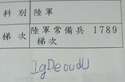 科別 陸軍
梯次 陸軍常備兵 1789 梯次
IgDeoudU